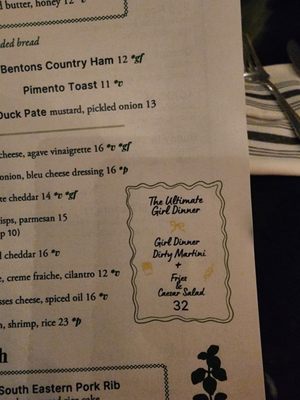 d butter, honey 12 *v
ded bread
Bentons Country Ham 12 *gf
Pimento Toast 11 *v
Duck Pate mustard, pickled onion 13
cheese, agave vinaigrette 16 *v *gf
onion, bleu cheese dressing 16 *p
te cheddar 14 *v *gf
isps, parmesan 15
p 10)
d cheddar 16 *v
e, creme fraiche, cilantro 12 *v
sses cheese, spiced oil 16 *v
n, shrimp, rice 23 *p
h
South Eastern Pork Rib
The Ultimate
Girl Dinner
Girl Dinner
Dirty Martini
+
Fries
&
Caesar Salad
32